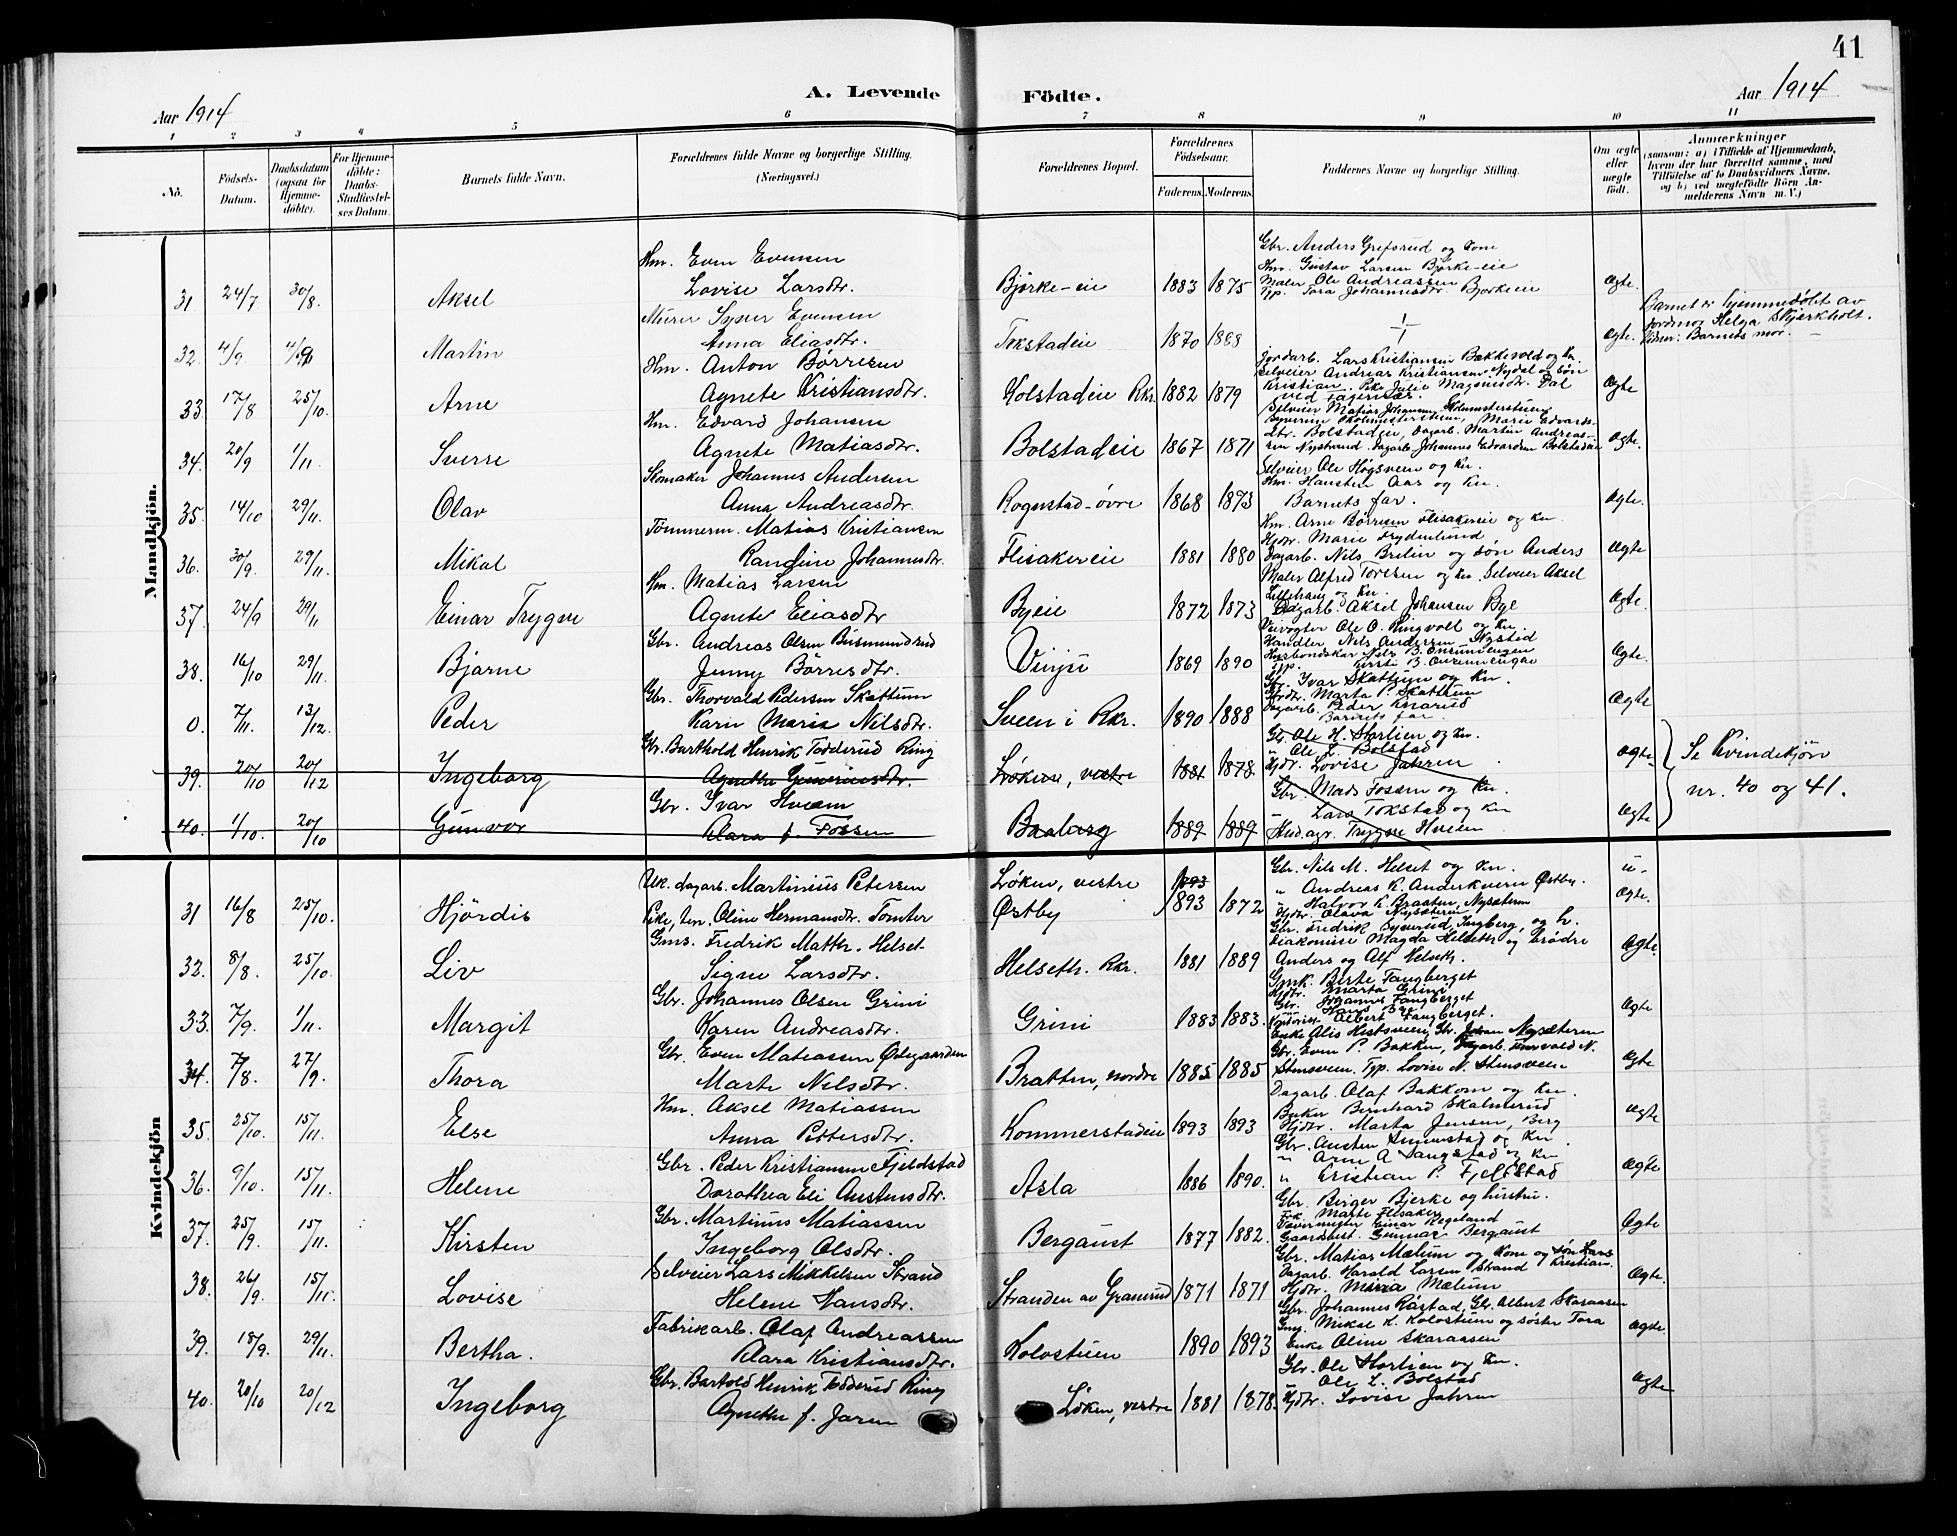 41
Aar 1914
A. Levende Födte.
Aar 1914
1 2 3 4 5 6 7 8 9 10 11
No.
Födsels-Datum.
Daabsdatum (ogsaa for Hjemmedöbte).
For Hjemmedöbte: Daabs-Stadfæstelses Datum.
Barnets fulde Navn.
Forældrenes fulde Navne og borgerlige Stilling. (Næringsvei.)
Forældrenes Bopæl.
Forældrenes Födselsaar.
Faderens. Moderens.
Faddernes Navne og borgerlige Stilling.
Om ægte eller uægte födt.
Anmærkninger (saasom: a) i Tilfælde af Hjemmedaab, hvem der har forrettet samme, med Tilföielse af to Daabsvidners Navne, og b) ved uægtefödte Börn Anmelderens Navn m. V.)
Mandkjön.
Hm. Even Evensen
Gbr. Anders Grefsrud og kone
Hm. Gustav Larsen Bjørke-eie
31 24/7 30/8. Aksel Lovise Larsdtr. Bjørke-eie 1883 1875 Maler Ole Andreassen
Tjp. Tora Johannesdtr. Bjørkeeie Ægte.
Murer Syver Evensen
Barnet er hjemmedøbt av
Jordmor Helga Skjærkholt.
32. 4/9 4/9 Martin Anna Eliasdtr. Tokstadeie 1870 1868 Ægte. Vidner: Barnets mor.
Hm. Anton Børresen
Jordarb. Lars Kristiansen Bakkevold og kn.
Selveier Andreas Kristiansen Nydal og søn
33. 17/8 25/10. Arne Agnete Kristiansdtr. Kolstadeie Rkr. 1882 1879 Kristian. Pike Julie Magnusdtr. Dal Ægte
Hm. Edvard Johansen
Selveier Matias Johansen Skolmesterstuen
34. 20/9 1/11. Sverre Agnete Matiasdtr. Bolstadeie 1867 1871 dtr. Bolstadeie, Dagarb. Martin Andreas-
sen Nystrand. Dagarb. Johannes Edvardsen Bolstadeie Ægte.
Skomaker Johannes Andersen
Selveier Ole Høgsveen og kn.
Hm. Hansten Aas og kn.
35. 14/10 29/11. Olav Anna Andreasdtr. Rognstad-øvre 1868 1873 Barnets far. Ægte.
Tömmerm. Matias Kristiansen
Hm. Arne Børresen Flisakereie og kn.
Hjdtr. Marie Frydenlund
36. 30/9. 29/11. Mikal Randine Johannesdtr. Flisakereie 1881 1880 Dagarb. Nils Brelin og søn Anders Ægte
Hm. Matias Larsen
Maler Alfred Toresen og kn. Selveier Aksel
Lillehaug og kn.
37. 24/9 29/11 Einar Trygve Agnete Eliasdtr. Byeie 1872 1873 Dagarb. Aksel Johansen Bye Ægte.
Gbr. Andreas Olsen Busmundrud
Veivogter Ole O. Ringvoll og kn.
Handler Nils Andersen Nystid
38. 16/10 29/11. Bjarne Jenny Børresdtr. Vinju 1869 1890 Ægte.
Gbr. Thorvald Pedersen Skattum
Gbr. Ivar Skattum og kn.
Hjdtr. Marta P. Skattum
0. 7/11. 13/12. Peder Karen Maria Nilsdtr. Sveen i Rkr. 1890 1888 Dagarb. Peder Knarud
Barnets far. Ægte
Gbr. Barthold Henrik Todderud Ring
Gbr. Ole H. Stortien og kn.
" Ole L. Bolstad
39. 20/10 20/12 Ingeborg Agnethe Guneriusdtr. Løken, vestre 1881 1878. Hjdtr. Lovise Jahren Ægte
Se Kvindekjön
nr. 40 og 41.
Gbr. Ivar Hveem
Gbr. Mads Fossen og kn.
" Lars Tokstad og kn
40. 1/10. 20/10 Gunvor Clara f. Fossen Braberg 1887 1887 Stud.agr. Trygve Hveem Ægte
Kvindekjön
Uk. dagarb. Martinius Petersen Løken, vestre 1893 Gbr. Nils M. Helset og kn. u.
" Andreas K. Anderkvern Østby.
31 16/8 25/10. Hjördis Pike, Oline Hermansdtr. Tomter Østby 1893 1872 " Halvor K. Braaten, Nysæteren
Hjdtr. Olava Nysæteren Ægte.
Gms. Fredrik Matth. Helset
Diakonisse Magda Helseth og brødre
32. 8/8. 25/10. Liv Signe Larsdtr. Helseth. Rkr. 1881 1889 Anders og Alf Helseth. Ægte.
Gbr. Johannes Olsen Grini
Gmk. Berte Fangberget
Hjdtr. Marta Grini
Gbr. Johannes Fangberget
33. 7/9. 1/11. Margit Karen Andreasdtr. Grini 1883 1883. Albert Fangberget. Ægte
Enke Alis Hestsveen, Gbr. Johan Nysæteren
Gbr. Even Matiassen Ødegaarden
Gbr. Even P. Bakken, Dagarb. Torvald N.
34. 7/8. 27/9. Thora Marte Nilsdtr. Bratten, nordre 1885 1885 Stensveen. Tjp. Lovise N. Stensveen Ægte
Hm. Aksel Matiassen
Dagarb. Olaf Bakkom og kn.
Bruker Bernhard Skalmerud
35. 25/10. 15/11. Else Anna Pettersdtr. Kommerstadeie 1893 1893 Hjdtr. Marta Jensen, Berg Ægte
Gbr. Peder Kristiansen Fjeldstad
Gbr. Austen Simenstad og kn.
" Arne A. Langstad og kn
36. 9/10. 15/11. Helene Dorothea Eli Austensdtr. Asla 1886 1890. " Kristian P. Fjeldstad Ægte
Gbr. Martinus Matiassen
Gbr. Birger Bjerke og hustru.
Frk. Marte Flisaker
37. 25/9. 15/11. Kirsten Ingeborg Olsdtr. Bergaust 1877 1882. Gaardbest. Gunnar Bergaust Ægte
Selveier Lars Mikkelsen Strand
Gbr. Matias Mælum og kone og søn Hans
Dagarb. Harald Larsen Strand / Kristian.
38. 26/9. 15/11. Lovise Helene Hansdtr. Stranden av Granerud 1871 1871 Hjdtr. Maria Mælum Ægte.
Fabrikarb. Olaf Andreassen
Gbr. Johannes Røstad, Gbr. Albert Skaraasen
Gmg. Mikal K. Kolostuen og søster Tora
39. 18/9. 29/11. Bertha. Klara Kristiansdtr. Kolostuen 1890 1893 Enke Oline Skaraasen Ægte
Gbr. Bartold Henrik Todderud Ring
Gbr. Ole Stortien og kn.
" Ole L. Bolstad
40. 20/10 20/12 Ingeborg Agnethe f. Jaren Løken, vestre 1881 1878. Hjdtr. Lovise Jahren Ægte